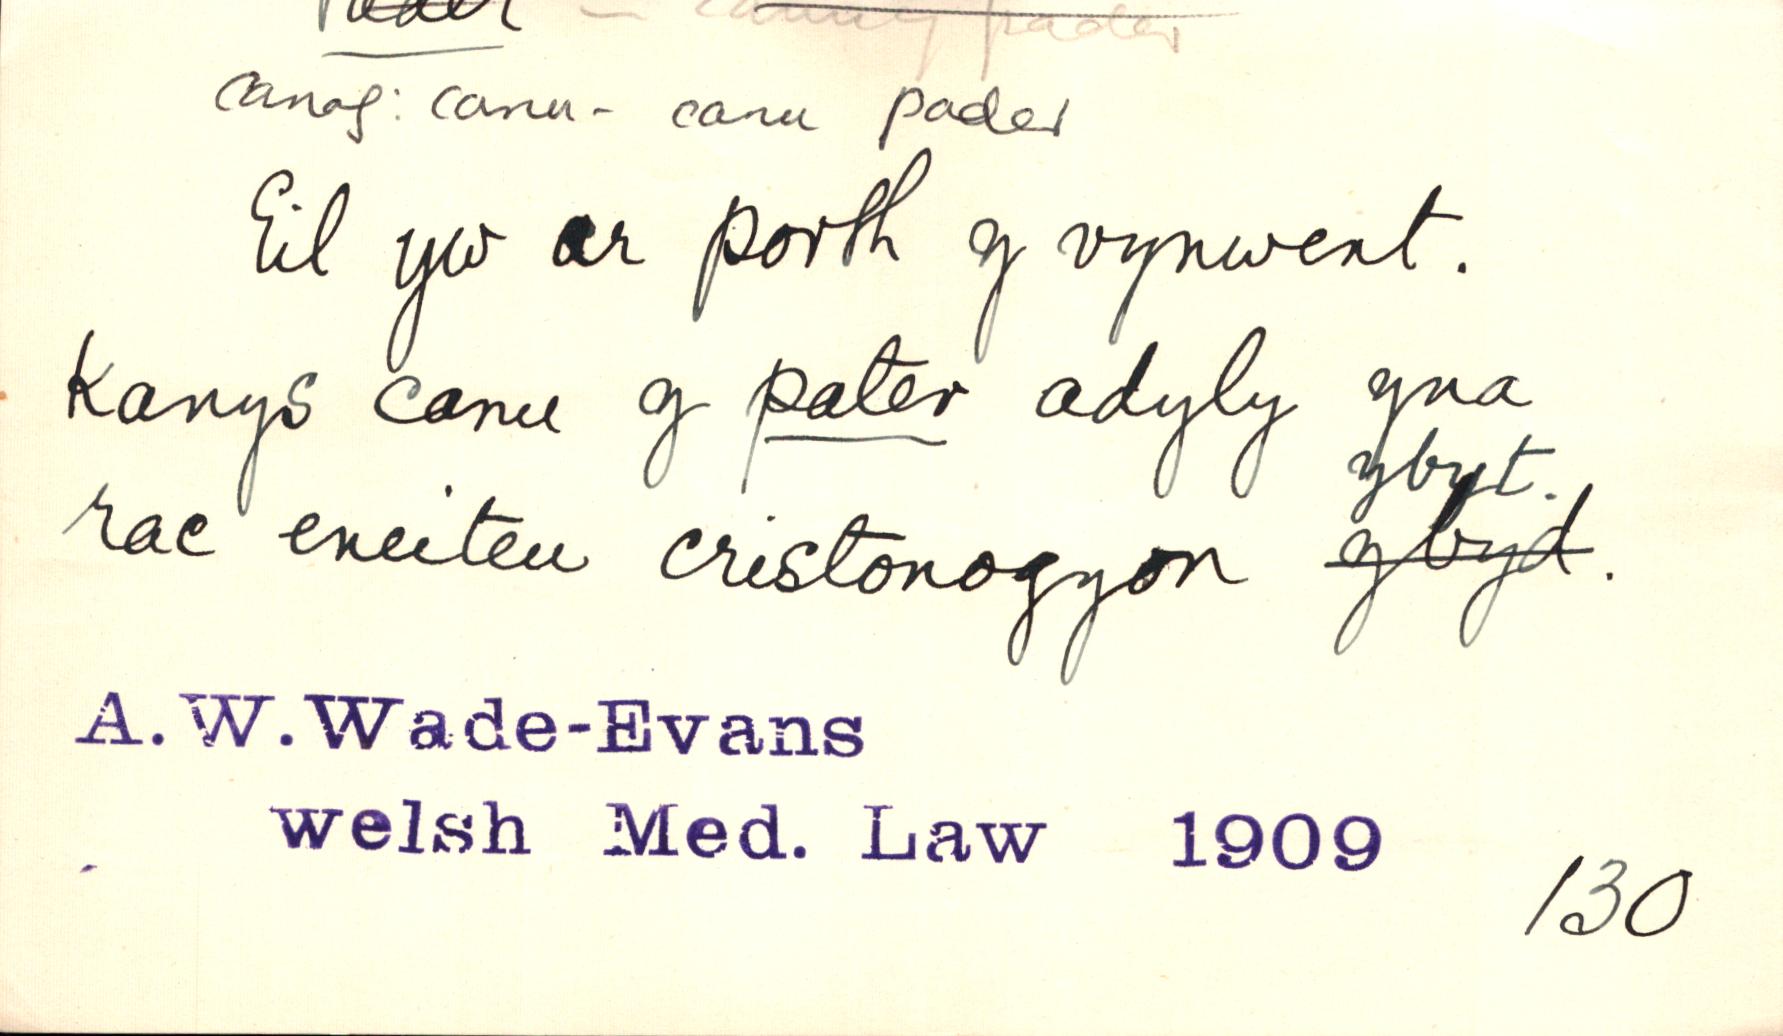 pader – canu pader
canaf: canu - canu pader
Eil yw ar porth y vynwent.
Kanys canu y pater adyly yna
ybyt.
rac eneiteu cristonogyon ybyd.
A.W.Wade-Evans
welsh Med. Law 1909
130